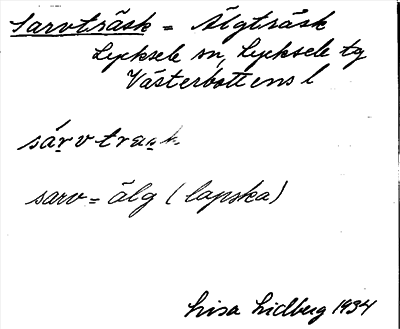 Sarvträsk = Älgträsk
Lycksele sn, Lycksele tg
Västerbottens l
sárvtrask
sarv = älg (lapska)
Lisa Lidberg 1934